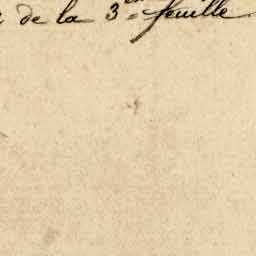 de la 3e feuille